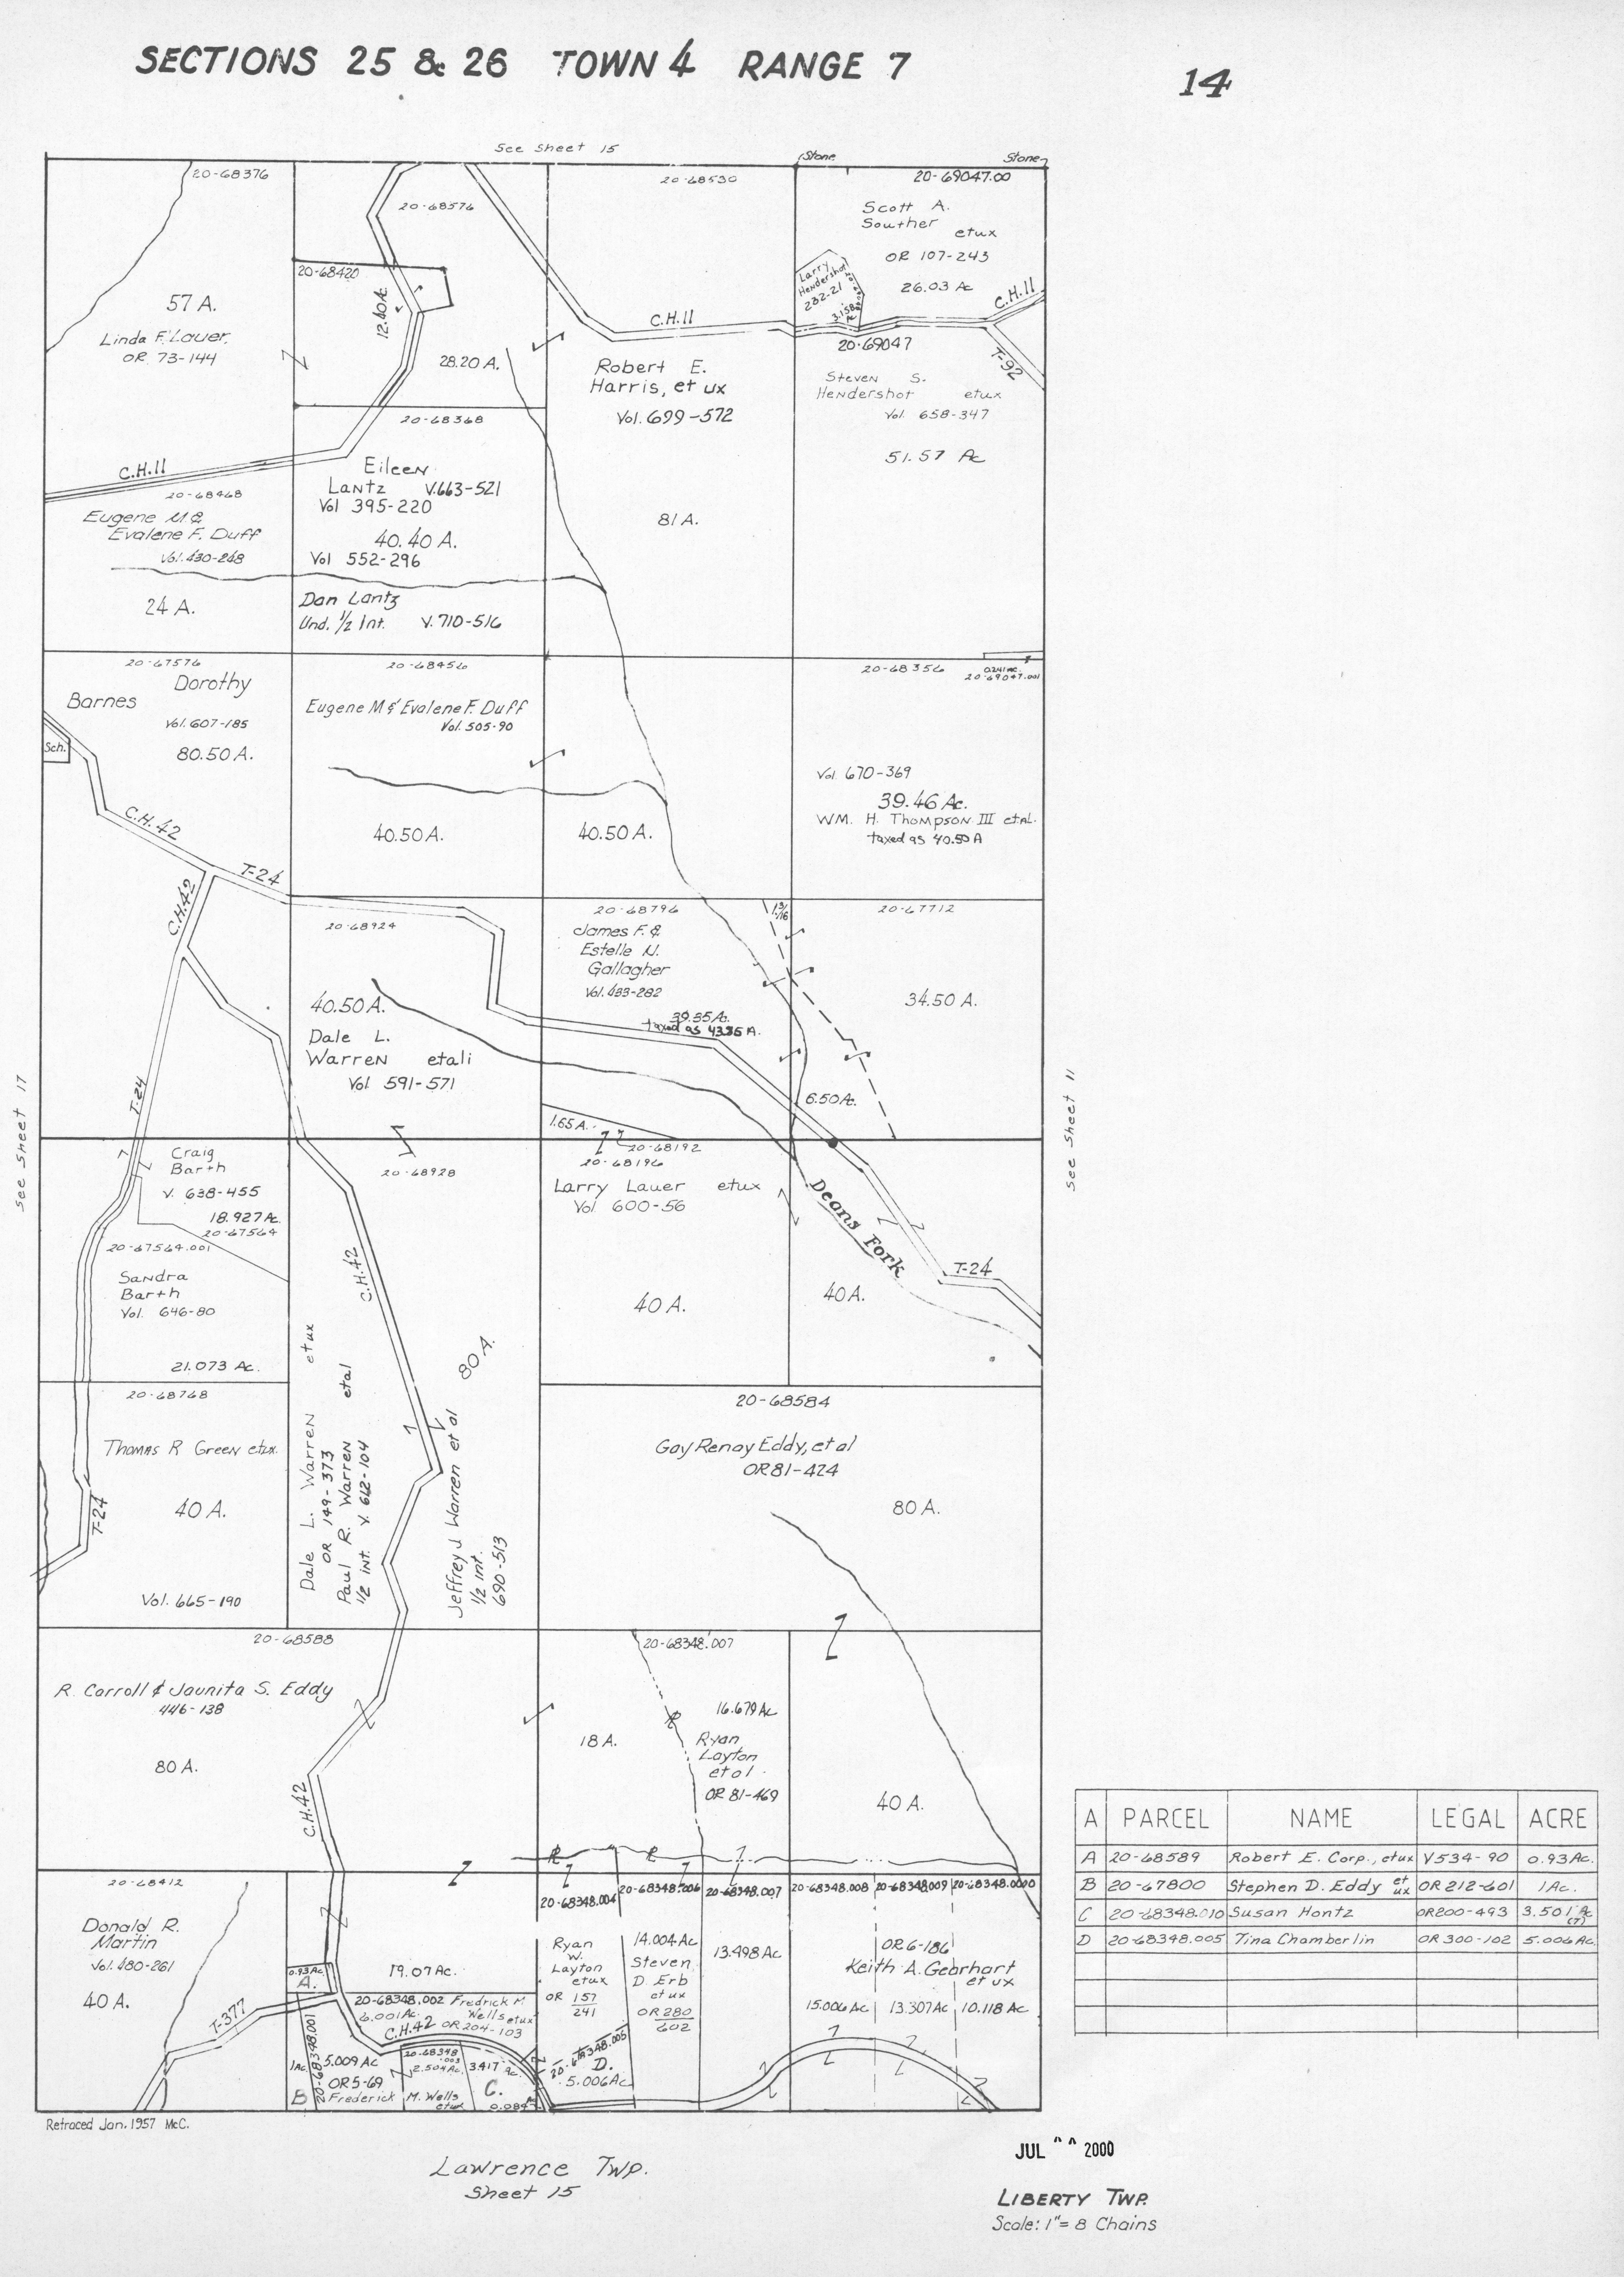 SECTIONS 25 & 26 TOWN 4 RANGE 7
14
See Sheet 15
Stone
Stone
20-68376
57 A.
Linda F. Lauer
OR 73-144
20-68576
20-68420
12.40A.
28.20 A.
20-68530
C.H.11
Robert E.
Harris, et ux
Vol. 699-572
81 A.
20-69047.00
Scott A.
Souther etux
OR 107-243
26.03 Ac
Larry
Hendershot
232-21
3.158
Ac
C.H.11
T-92
20-69047
Steven S.
Hendershot etux
Vol. 658-347
51.57 Ac
C.H.11
20-68468
Eugene M &
Evalene F. Duff
Vol. 430-248
24 A.
20-68368
Eileen
Lantz V.663-521
Vol 395-220
40.40 A.
Vol 552-296
Dan Lantz
Und. 1/2 Int. V. 710-516
20-67576
Dorothy
Barnes
Vol. 607-185
80.50 A.
Sch.
C.H.42
T-24
C.H.42
20-68456
Eugene M & Evalene F. Duff
Vol. 505-90
40.50 A.
40.50 A.
20-68356
0.241 AC.
20-69047.001
Vol. 670-369
39.46 Ac.
WM. H. Thompson III etal.
taxed as 40.50 A
20-68924
40.50 A.
Dale L.
Warren etali
Vol 591-571
20-68796
James F. &
Estelle N.
Gallagher
Vol. 433-282
39.35 A.
taxed as 43.35 A.
1.65 A.
20-67712
34.50 A.
6.50 Ac.
See Sheet 17
See Sheet 11
T-24
Craig
Barth
V. 638-455
18.927 Ac.
20-67564
20-67564.001
Sandra
Barth
Vol. 646-80
21.073 Ac.
20-68928
C.H.42
80 A.
Dale L. Warren etux
OR 149-373
Paul R. Warren etal
1/2 int. V. 662-104
Jeffrey J Warren et al
1/2 int.
690-513
20-68192
20-68196
Larry Lauer etux
Vol 600-56
40 A.
40 A.
Deans Fork
T-24
20-68768
Thomas R Green etux.
40 A.
T-24
Vol. 665-190
20-68584
Gay Renay Eddy, et al
OR 81-424
80 A.
20-68588
R. Carroll & Jaunita S. Eddy
446-138
80 A.
C.H.42
20-68348.007
16.679 Ac
18 A.
Ryan
Layton
et al
OR 81-469
40 A.
A PARCEL NAME LEGAL ACRE
A 20-68589 Robert E. Corp., etux V534-90 0.93 Ac.
B 20-67800 Stephen D. Eddy et ux OR 212-601 1 Ac.
C 20-68348.010 Susan Hontz OR200-493 3.501 Ac (T)
D 20-68348.005 Tina Chamberlin OR 300-102 5.006 Ac.
20-68412
Donald R.
Martin
Vol. 480-261
40 A.
T-377
0.93 Ac.
A.
19.07 Ac.
20-68348.002 Fredrick M
6.001 Ac. Wells etux
C.H.42 OR 204-103
20-68348.001
1 Ac.
B
5.009 Ac
OR 5-69
Frederick M. Wells
etux
20-68348
.003
2.504 Ac.
3.417 Ac.
C.
0.084
20-68348.004
20-68348.006
20-68348.007
20-68348.008
20-68348.009
20-68348.0000
Ryan
W.
Layton
etux
OR 157
241
14.004 Ac
Steven
D Erb
et ux
OR 280
602
20-68348.005
D.
5.006 Ac
13.498 Ac
OR 6-186
Keith A. Gearhart
et ux
15.006 Ac
13.307 Ac
10.118 Ac
Retraced Jan. 1957 McC.
Lawrence Twp.
Sheet 15
JUL 2000
LIBERTY TWP.
Scale: 1"= 8 Chains